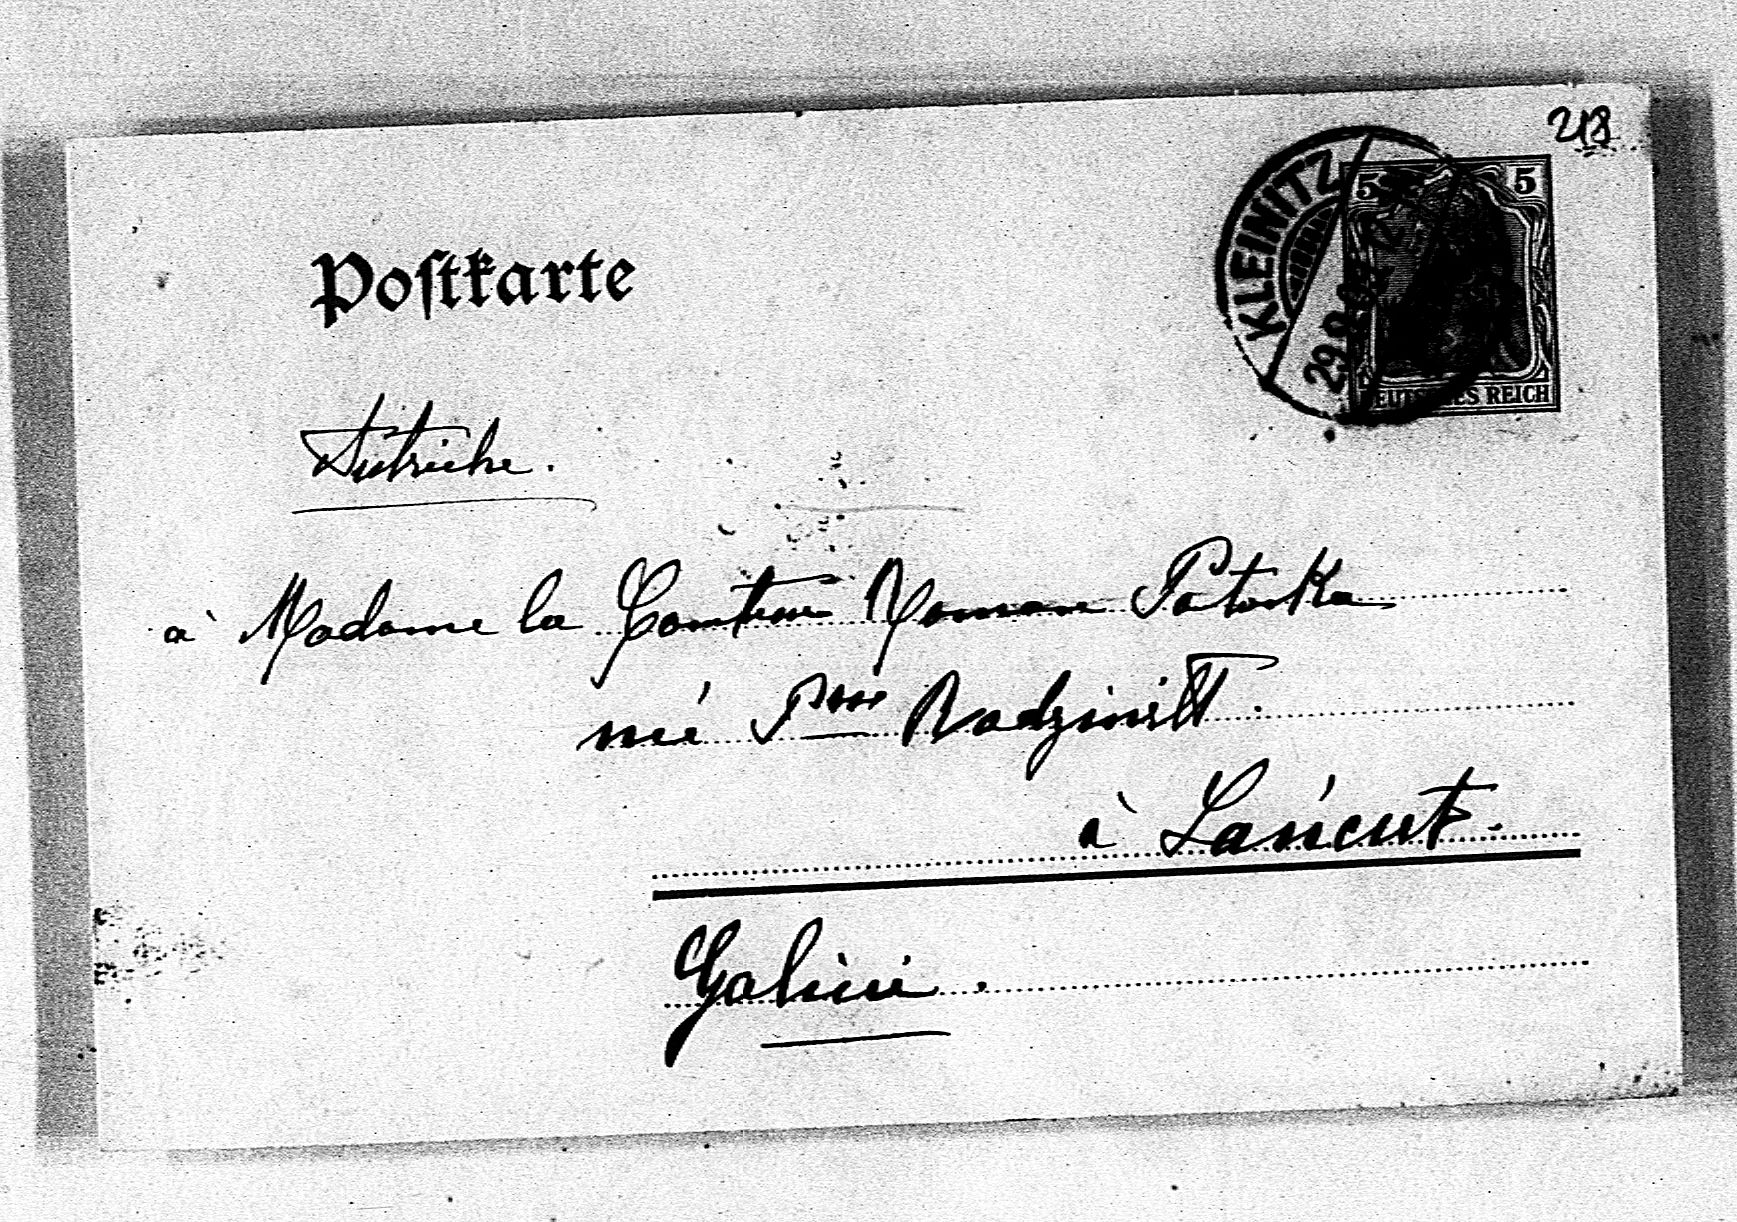 218
KLEINITZ
5 5
29.8.
DEUTSCHES REICH
Postkarte
Autriche.
à Madame la Comtesse Roman Potocka
née Pesse Radziwill.
à Łańcut.
Galicie.